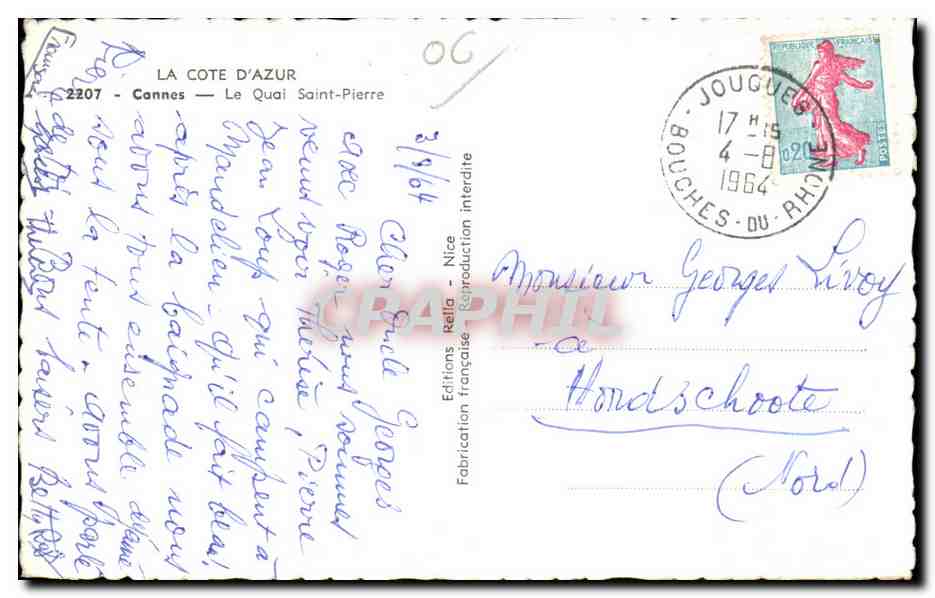 OC
LA COTE D'AZUR
2207 - Cannes — Le Quai Saint-Pierre
REPUBLIQUE FRANÇAISE
0,20
POSTES
JOUQUES
17 H 15
4 - 8
1964
BOUCHES-DU-RHONE
3/8/64
Cher Oncle Georges
avec Roger nous sommes
venus voir Merlise, Pierre
Jean Loup qui campent à
Mandelieu - qu'il fait beau!
après la baignade nous
avons tous ensemble déjeuné
sous la tente. avons parlé
de
baisers Betty
Editions Rella - Nice
Fabrication française - Reproduction interdite
Monsieur Georges Livoy
à
Hondschoote
(Nord)
CPAPHIL